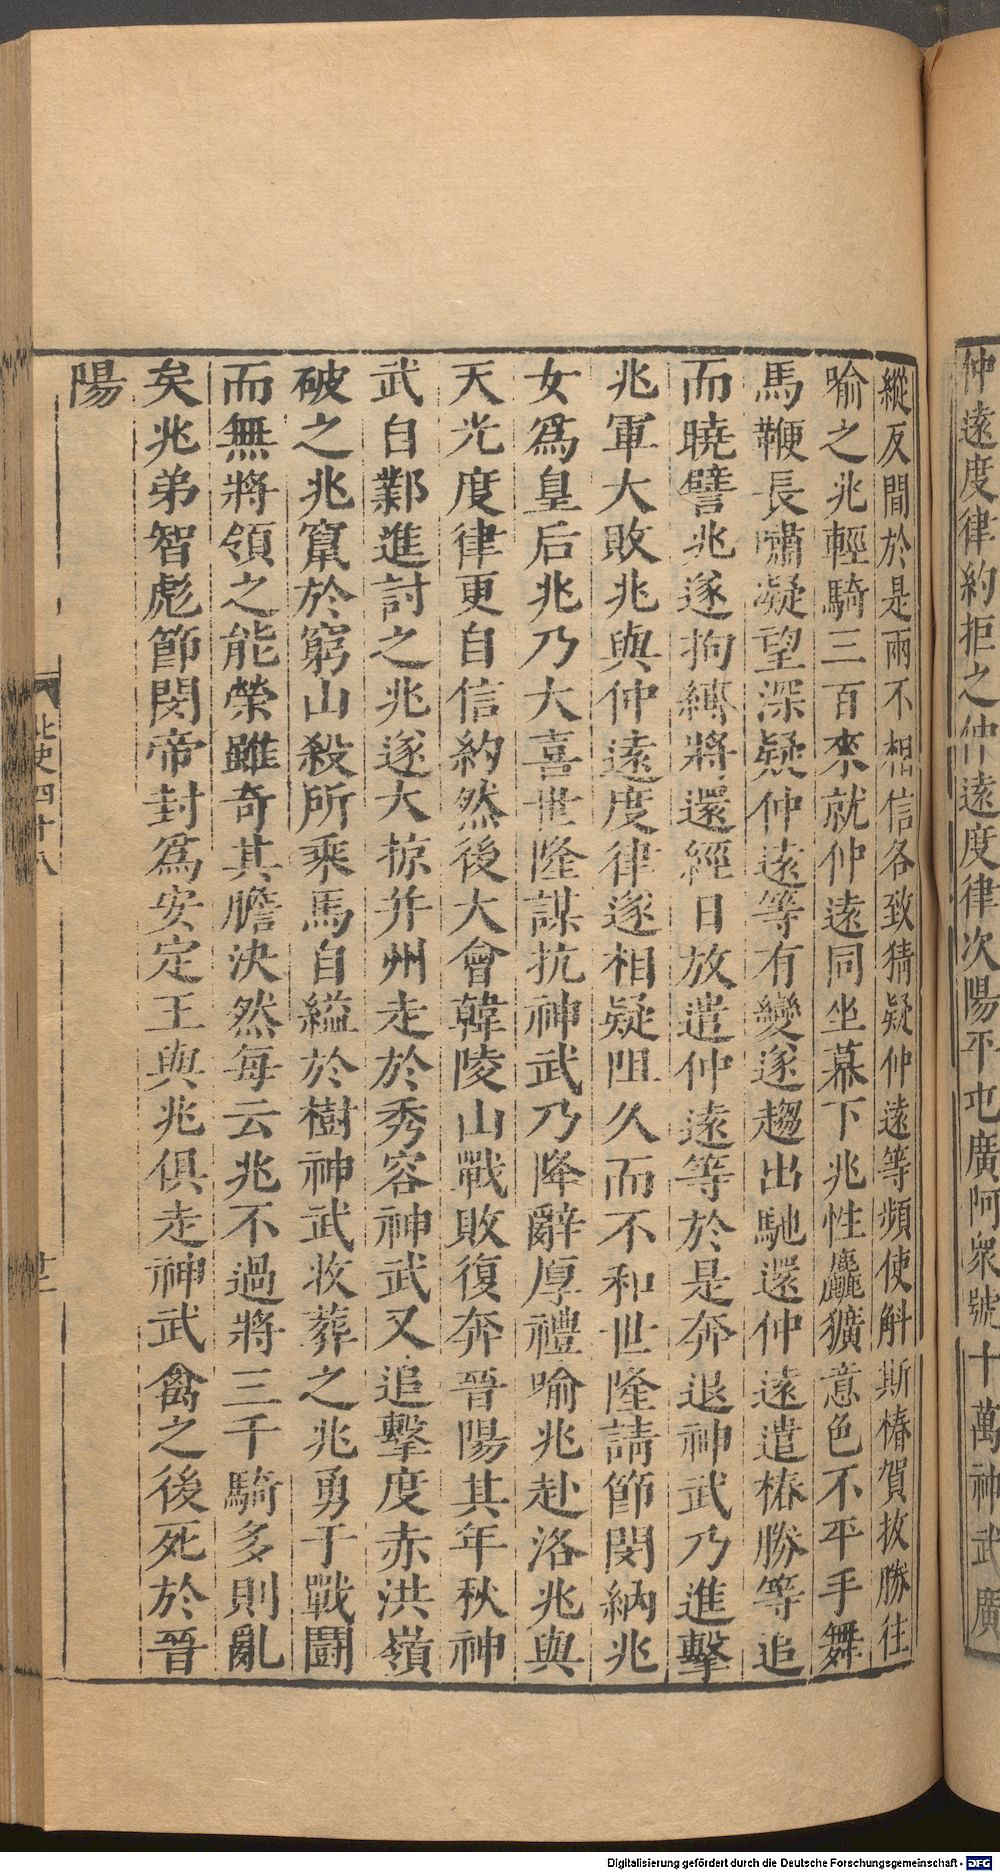 仲遠度律約拒之仲遠度律次陽平屯廣阿衆號十萬神武廣
縱反間於是兩不相信各致猜疑仲遠等頻使斛斯椿賀拔勝往
喻之兆輕騎三百來就仲遠同坐幕下兆性麤獷意色不平手舞
馬鞭長嘯凝望深疑仲遠等有變遂趨出馳還仲遠遣椿勝等追
而曉譬兆遂拘縛將還經日放遣仲遠等於是奔退神武乃進擊
兆軍大敗兆與仲遠度律遂相疑阻久而不和世隆請節閔納兆
女爲皇后兆乃大喜世隆謀抗神武乃降辭厚禮喻兆赴洛兆與
天光度律更自信約然後大會韓陵山戰敗復奔晉陽其年秋神
武自鄴進討之兆遂大掠并州走於秀容神武又追擊度赤洪嶺
破之兆竄於窮山殺所乘馬自縊於樹神武收葬之兆勇于戰鬭
而無將領之能榮雖奇其膽決然每云兆不過將三千騎多則亂
矣兆弟智彪節閔帝封爲安定王與兆俱走神武禽之後死於晉
陽
北史四十八
Digitalisierung gefördert durch die Deutsche Forschungsgemeinschaft - DFG